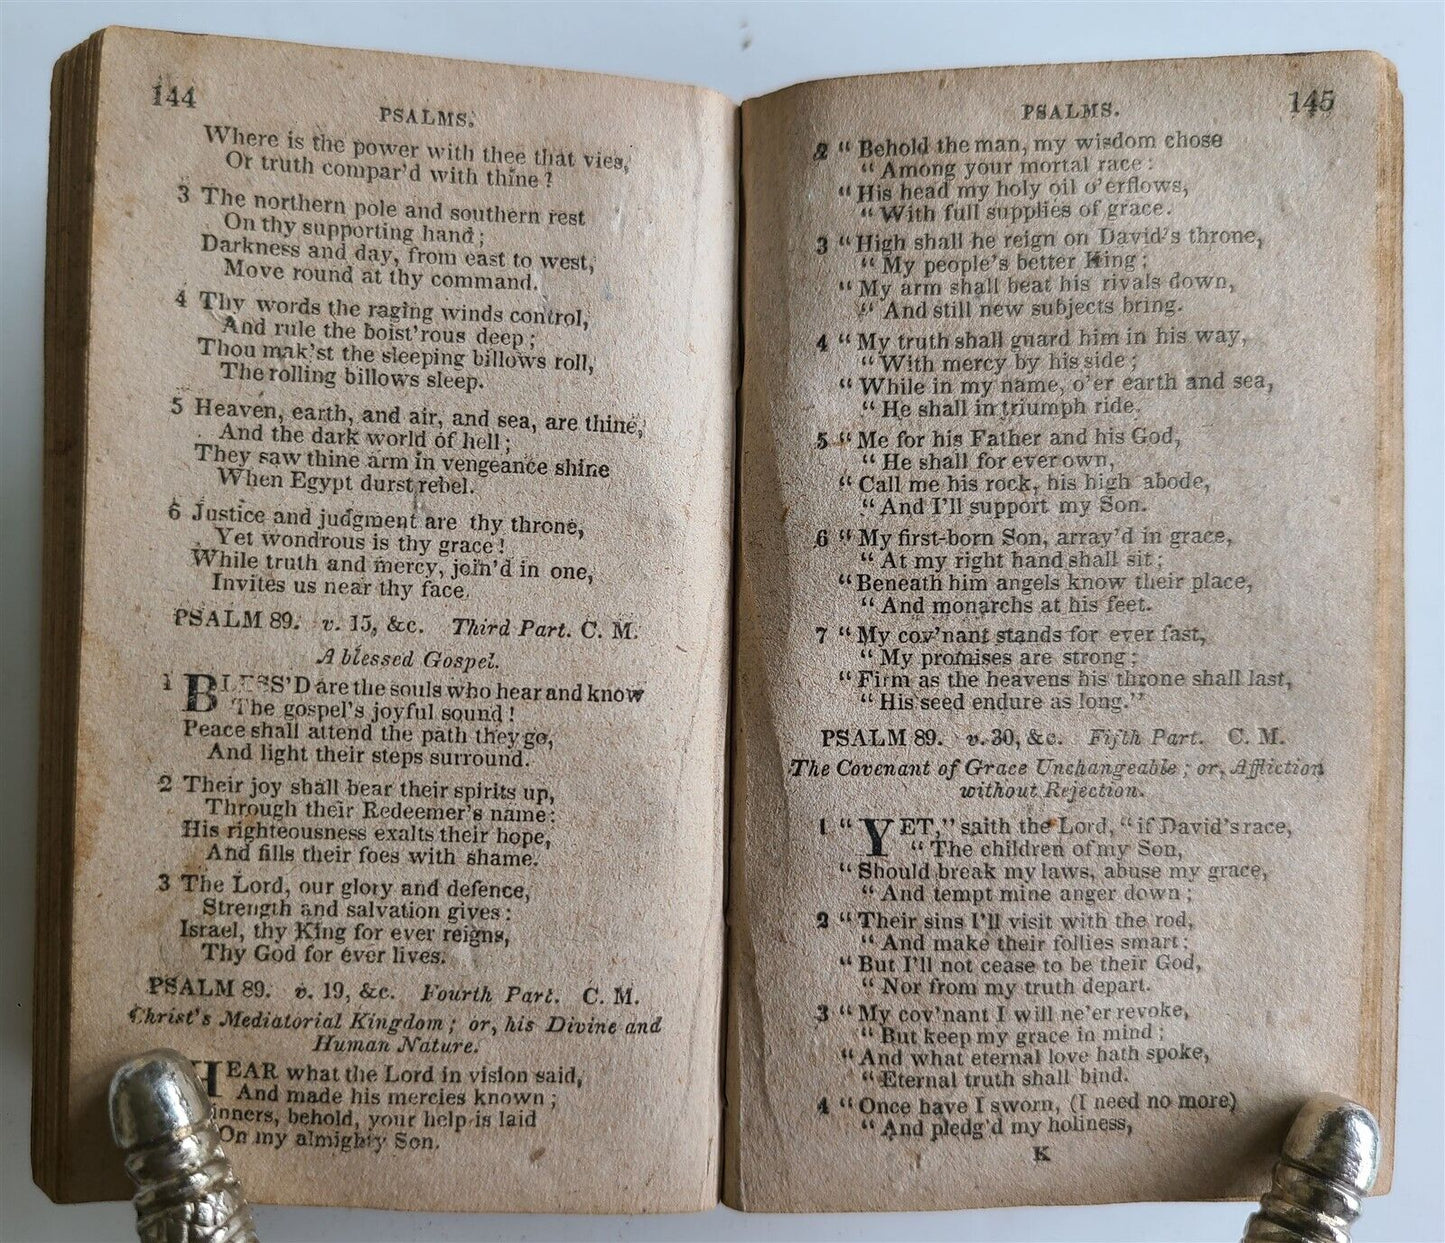 144
PSALMS.
Where is the power with thee that vies,
Or truth compar'd with thine?
3 The northern pole and southern rest
On thy supporting hand;
Darkness and day, from east to west,
Move round at thy command.
4 Thy words the raging winds control,
And rule the boist'rous deep;
Thou mak'st the sleeping billows roll,
The rolling billows sleep.
5 Heaven, earth, and air, and sea, are thine,
And the dark world of hell;
They saw thine arm in vengeance shine
When Egypt durst rebel.
6 Justice and judgment are thy throne,
Yet wondrous is thy grace!
While truth and mercy, join'd in one,
Invites us near thy face.
PSALM 89. v. 15, &c. Third Part. C. M.
A blessed Gospel.
1 BLESS'D are the souls who hear and know
The gospel's joyful sound!
Peace shall attend the path they go,
And light their steps surround.
2 Their joy shall bear their spirits up,
Through their Redeemer's name:
His righteousness exalts their hope,
And fills their foes with shame.
3 The Lord, our glory and defence,
Strength and salvation gives:
Israel, thy King for ever reigns,
Thy God for ever lives.
PSALM 89. v. 19, &c. Fourth Part. C. M.
Christ's Mediatorial Kingdom; or, his Divine and
Human Nature.
HEAR what the Lord in vision said,
And made his mercies known;
inners, behold, your help is laid
On my almighty Son.
PSALMS.
145
2 "Behold the man, my wisdom chose
"Among your mortal race:
"His head my holy oil o'erflows,
"With full supplies of grace.
3 "High shall he reign on David's throne,
"My people's better King;
"My arm shall beat his rivals down,
"And still new subjects bring.
4 "My truth shall guard him in his way,
"With mercy by his side;
"While in my name, o'er earth and sea,
"He shall in triumph ride.
5 "Me for his Father and his God,
"He shall for ever own,
"Call me his rock, his high abode,
"And I'll support my Son.
6 "My first-born Son, array'd in grace,
"At my right hand shall sit;
"Beneath him angels know their place,
"And monarchs at his feet.
7 "My cov'nant stands for ever fast,
"My promises are strong;
"Firm as the heavens his throne shall last,
"His seed endure as long."
PSALM 89. v. 30, &c. Fifth Part. C. M.
The Covenant of Grace Unchangeable; or, Affliction
without Rejection.
1 "YET," saith the Lord, "if David's race,
"The children of my Son,
"Should break my laws, abuse my grace,
"And tempt mine anger down;
2 "Their sins I'll visit with the rod,
"And make their follies smart;
"But I'll not cease to be their God,
"Nor from my truth depart.
3 "My cov'nant I will ne'er revoke,
"But keep my grace in mind;
"And what eternal love hath spoke,
"Eternal truth shall bind.
4 "Once have I sworn, (I need no more)
"And pledg'd my holiness,
K